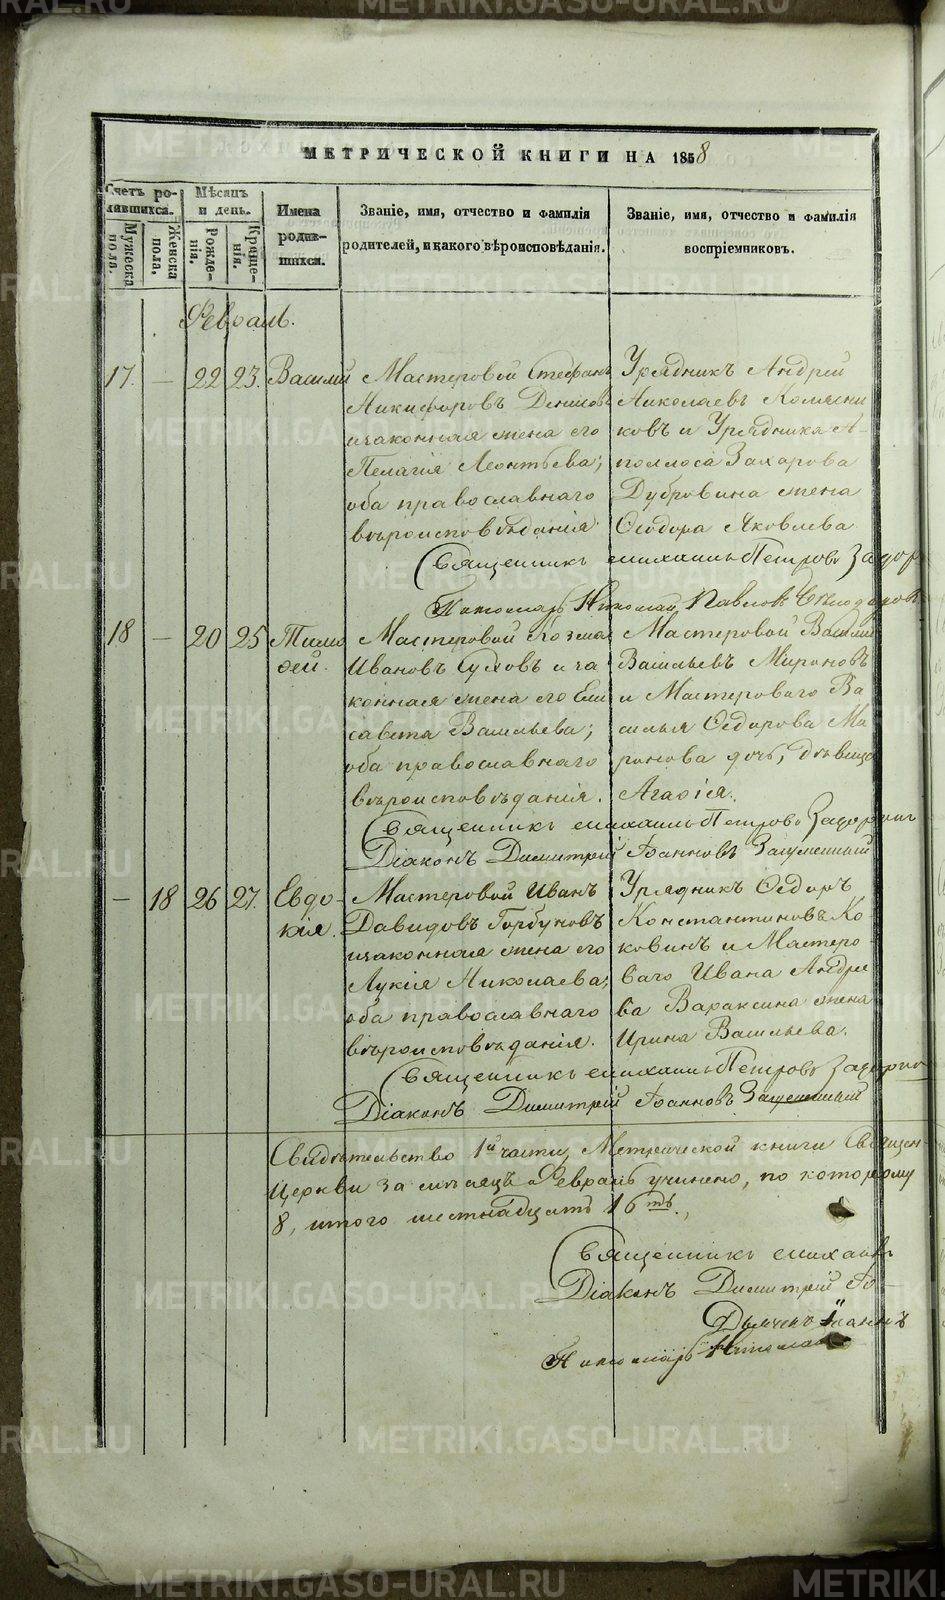 МЕТРИЧЕСКОЙ КНИГИ НА 1858
Счетъ ро-
дившихся.
Мужеска
пола.
Женска
пола.
Мѣсяцъ
и день.
Рожде-
нія.
Креще-
нія.
Имена
родив-
шихся.
Званіе, имя, отчество и фамилія
родителей, и какого вѣроисповѣданія.
Званіе, имя, отчество и фамилія
воспріемниковъ.
Февраль.
17. — 22 23. Василій
Мастеровой Стефанъ
Никифоровъ Денисовъ
и законная жена его
Пелагія Леонтьева;
оба православнаго
вѣроисповѣданія.
Урядникъ Андрей
Николаевъ Колясни
ковъ и Урядника А-
поллоса Захарова
Дубровина жена
Ѳеодора Яковлева.
Священникъ Михаилъ Петровъ
Пономарь Николай Павловъ
18 — 20 25 Тимо
ѳей.
Мастеровой Козма
Ивановъ Суховъ и за
конная жена его Ели
савета Васильева;
оба православнаго
вѣроисповѣданія.
Мастеровой Василій
Васильевъ Мироновъ
и Мастероваго Ва
силья Ѳедорова Ми
ронова дочь, дѣвица
Агаѳія.
Священникъ Михаилъ Петровъ
Діаконъ Димитрій Іоанновъ
— 18 26 27. Евдо-
кія.
Мастеровой Иванъ
Давидовъ Горбуновъ
и законная жена его
Лукія Николаева;
оба православнаго
вѣроисповѣданія.
Урядникъ Ѳедоръ
Константиновъ Ко-
ковинъ и Мастеро-
ваго Ивана Андре
ва Вараксина жена
Ирина Васильева.
Священникъ Михаилъ Петровъ
Діаконъ Димитрій Іоанновъ
Свидѣтельство 1й части Метрической книги Священ-
Церкви за мѣсяцъ Февраль учинено, по которому
8, итого шестнадцать 16ть.,
Священникъ Михаилъ
Діаконъ Димитрій Іо-
Дьячекъ Іоаннъ
Пономарь Николай
METRIKI.GASO-URAL.RU